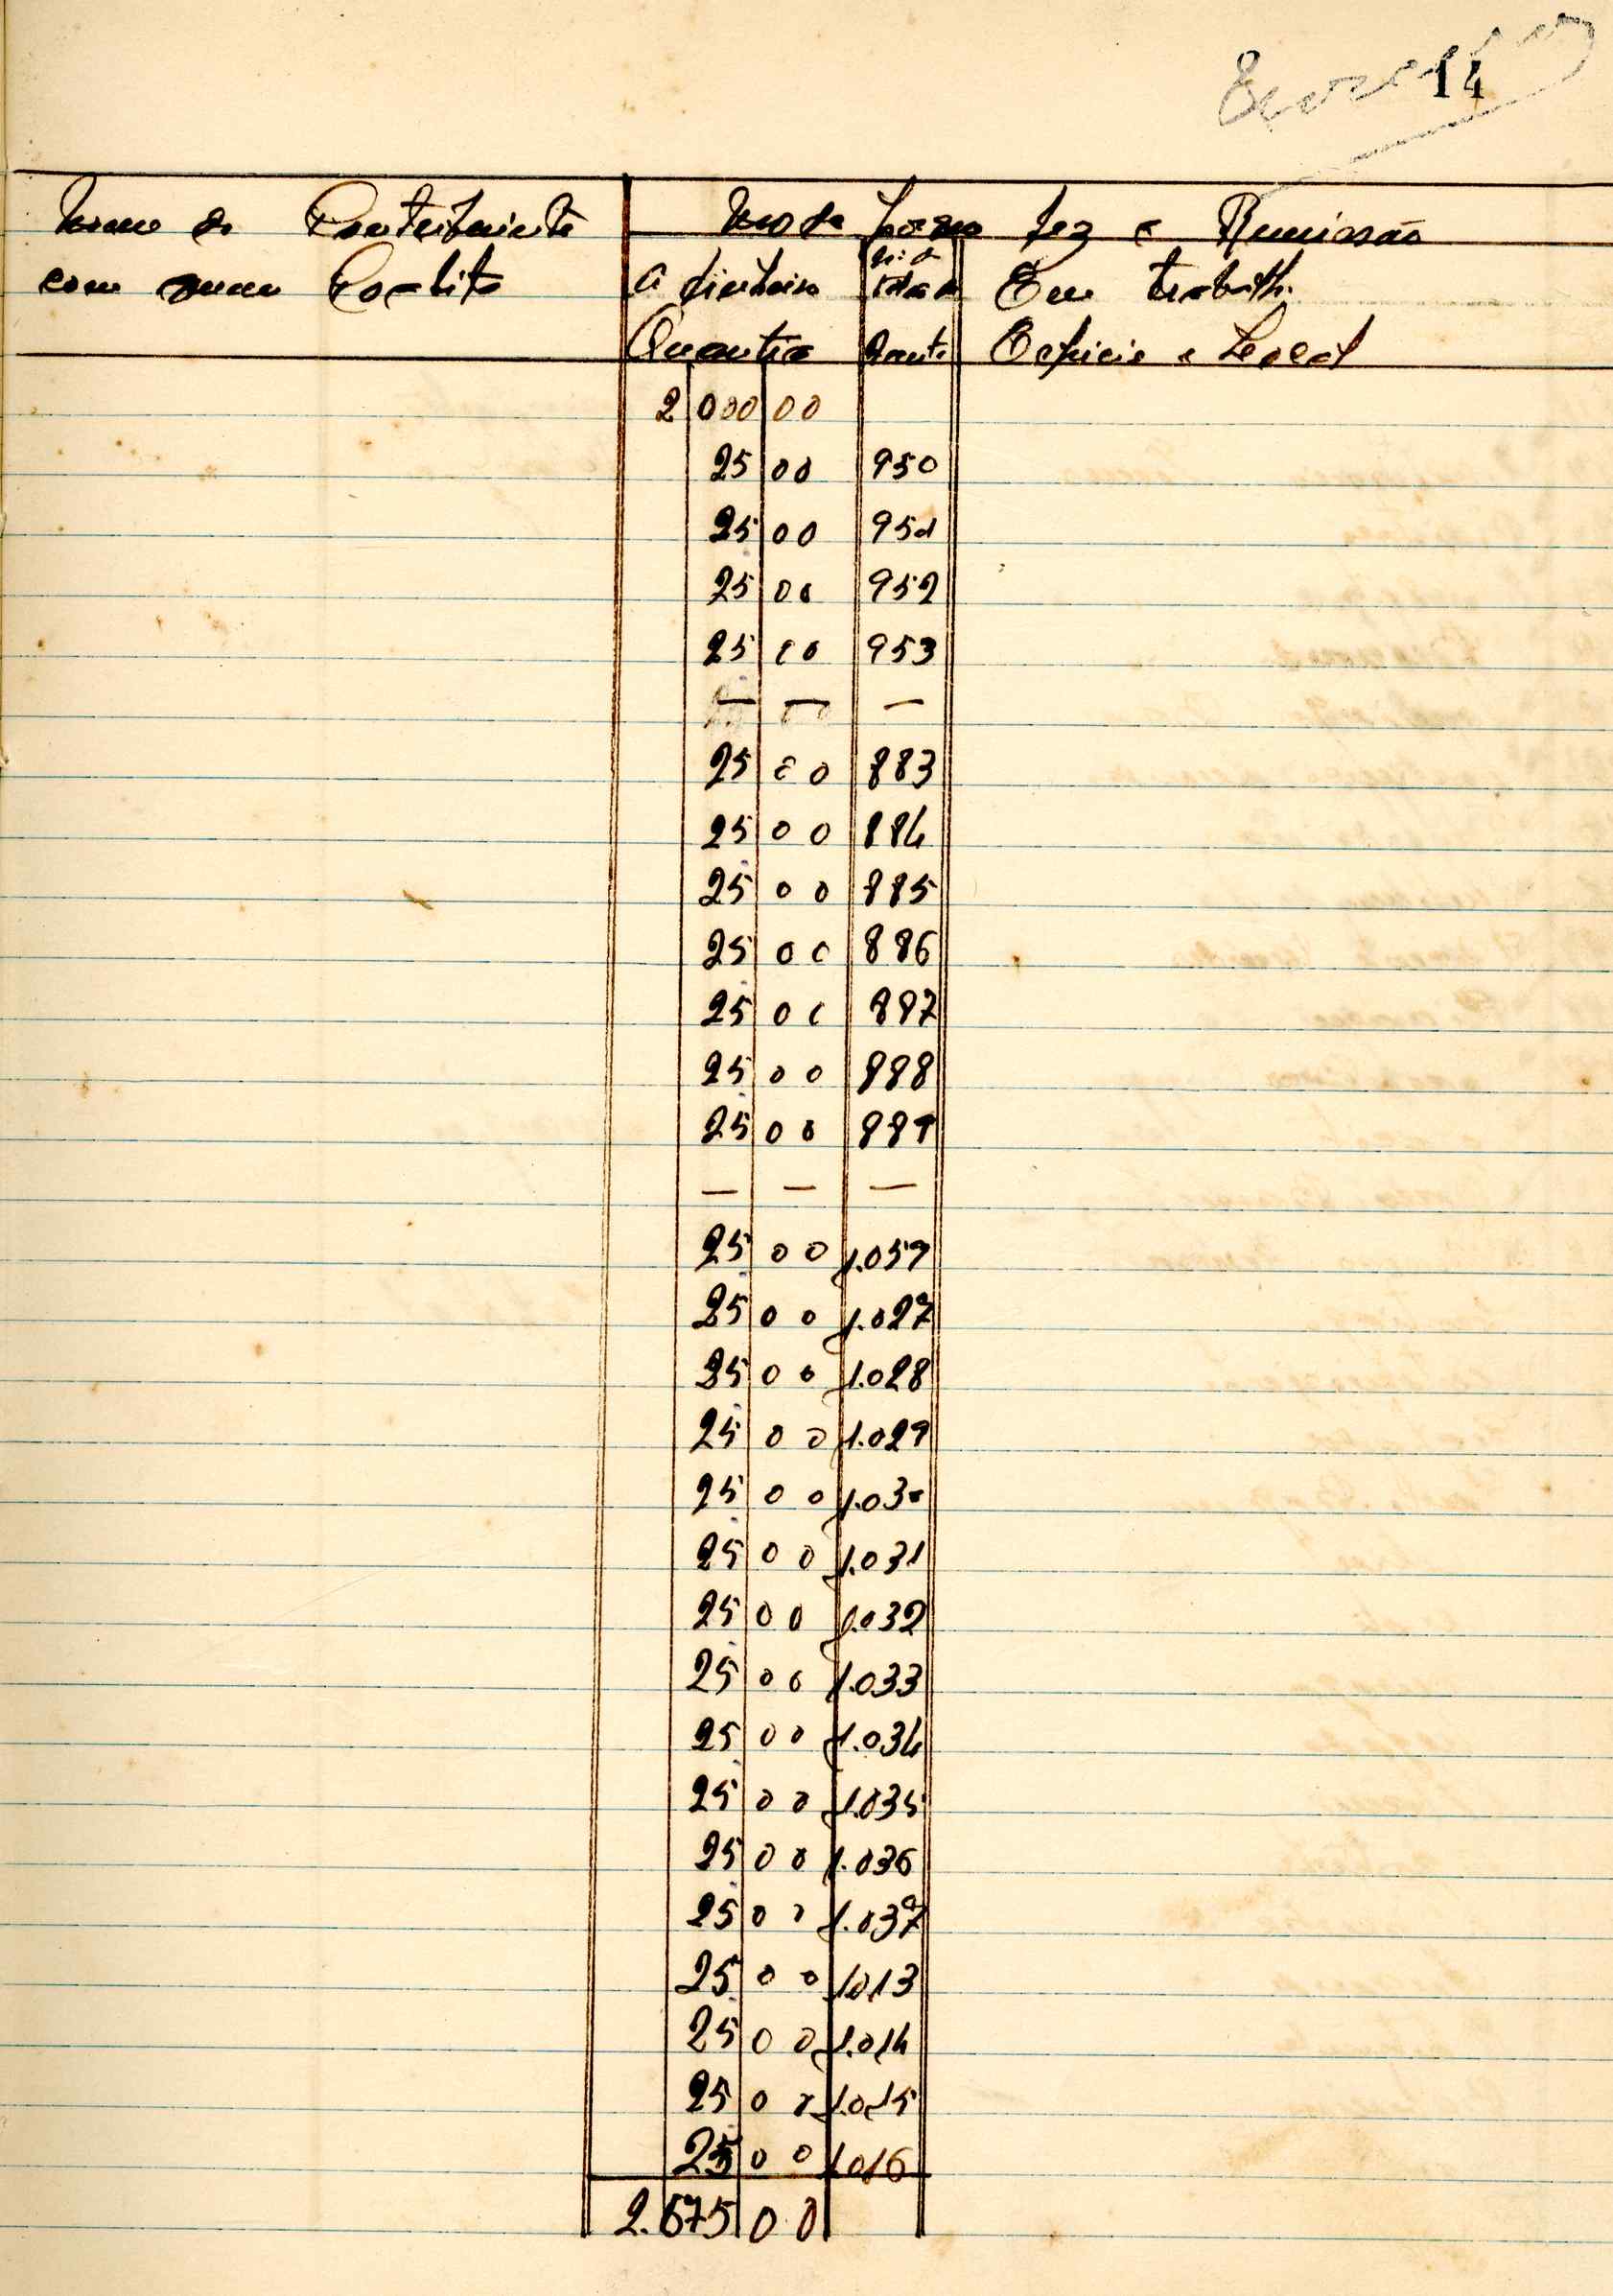 14
Nome do Contribuinte
com quem Coabita
Modo porque fez a Remissão
A dinheiro
Quantia
Em trabalho
Local
2 000 00
25 00 950
25 00 951
25 00 952
25 00 953
— — —
25 00 883
25 00 884
25 00 885
25 00 886
25 00 887
25 00 888
25 00 889
— — —
25 00 1.059
25 00 1.027
25 00 1.028
25 00 1.029
25 00 1.030
25 00 1.031
25 00 1.032
25 00 1.033
25 00 1.034
25 00 1.035
25 00 1.036
25 00 1.037
25 00 1013
25 00 1.014
25 00 1.015
25 00 1016
2.675 00